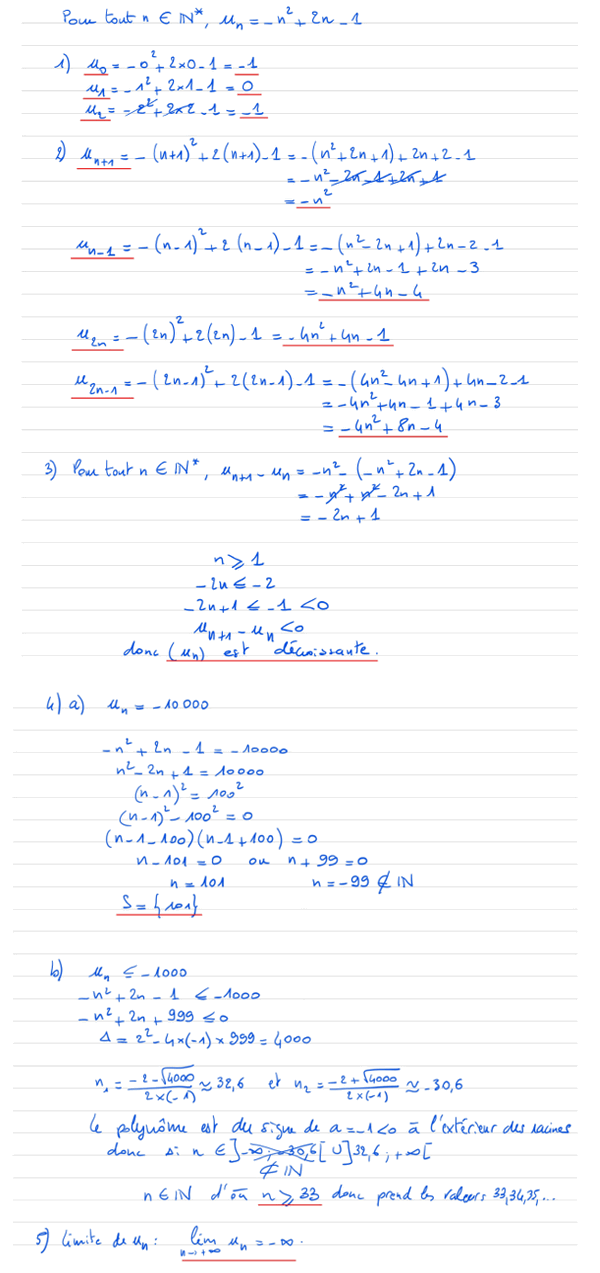 Pour tout n ∈ ℕ*, uₙ = -n² + 2n - 1
1) u₀ = -0² + 2×0 - 1 = -1
u₁ = -1² + 2×1 - 1 = 0
u₂ = -2² + 2×2 - 1 = -1
2) uₙ₊₁ = -(n+1)² + 2(n+1) - 1 = -(n² + 2n + 1) + 2n + 2 - 1
= -n² - 2n - 1 + 2n + 1
= -n²
uₙ₋₁ = -(n-1)² + 2(n-1) - 1 = -(n² - 2n + 1) + 2n - 2 - 1
= -n² + 2n - 1 + 2n - 3
= -n² + 4n - 4
u₂ₙ = -(2n)² + 2(2n) - 1 = -4n² + 4n - 1
u₂ₙ₋₁ = -(2n-1)² + 2(2n-1) - 1 = -(4n² - 4n + 1) + 4n - 2 - 1
= -4n² + 4n - 1 + 4n - 3
= -4n² + 8n - 4
3) Pour tout n ∈ ℕ*, uₙ₊₁ - uₙ = -n² - (-n² + 2n - 1)
= -n² + n² - 2n + 1
= -2n + 1
n ⩾ 1
-2n ⩽ -2
-2n + 1 ⩽ -1 < 0
uₙ₊₁ - uₙ < 0
donc (uₙ) est décroissante.
4) a) uₙ = -10 000
-n² + 2n - 1 = -10000
n² - 2n + 1 = 10000
(n-1)² = 100²
(n-1)² - 100² = 0
(n-1-100)(n-1+100) = 0
n - 101 = 0 ou n + 99 = 0
n = 101 n = -99 ∉ ℕ
S = {101}
b) uₙ ⩽ -1000
-n² + 2n - 1 ⩽ -1000
-n² + 2n + 999 ⩽ 0
Δ = 2² - 4×(-1)×999 = 4000
n₁ = (-2-√4000)/(2×(-1)) ≈ 32,6 et n₂ = (-2+√4000)/(2×(-1)) ≈ -30,6
Le polynôme est du signe de a = -1 < 0 à l'extérieur des racines
donc si n ∈ ]-∞; -30,6[ U ]32,6; +∞[
∉ ℕ
n ∈ ℕ d'où n ⩾ 33 donc prend les valeurs 33, 34, 35, ...
5) Limite de uₙ : lim uₙ = -∞.
n→+∞